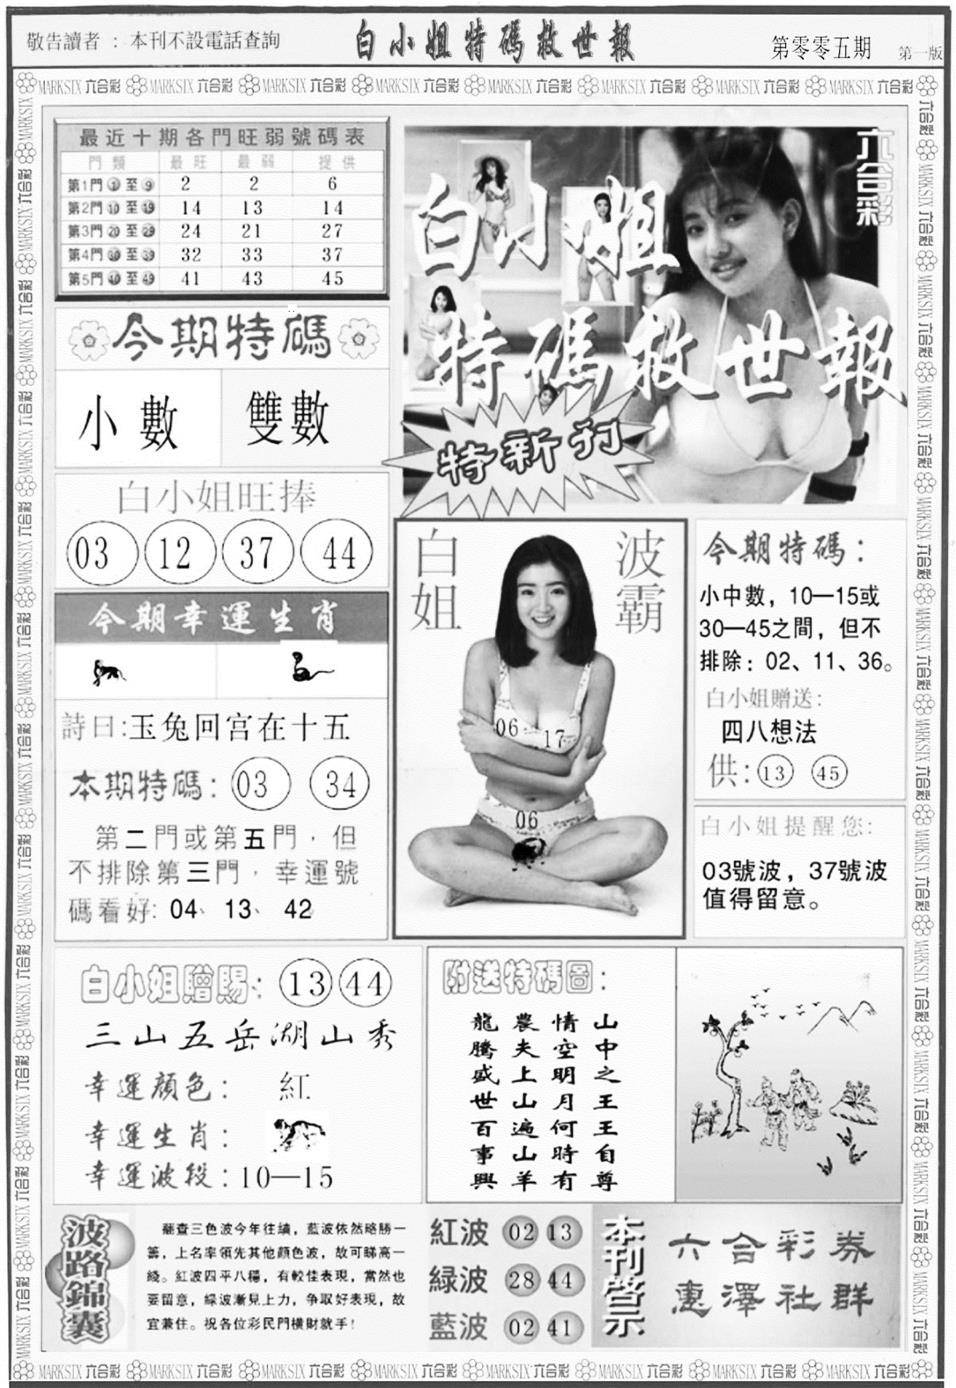 敬告讀者 : 本刊不設電話查詢
白小姐特碼救世報
第零零五期
第一版
MARKSIX 六合彩
最近十期各門旺弱號碼表
門類 最旺 最弱 提供
第1門 1 至 9 2 2 6
第2門 10 至 19 14 13 14
第3門 20 至 29 24 21 27
第4門 30 至 39 32 33 37
第5門 40 至 49 41 43 45
六合彩
白小姐
特碼救世報
特新刊
今期特碼
小數 雙數
白小姐旺捧
03 12 37 44
今期幸運生肖
詩曰:玉兔回宫在十五
本期特碼: 03 34
第二門或第五門，但
不排除第三門，幸運號
碼看好: 04、13、42
白姐
波霸
06 17
06
今期特碼：
小中數，10—15或
30—45之間，但不
排除：02、11、36。
白小姐贈送:
四八想法
供: 13 45
白小姐提醒您:
03號波，37號波
值得留意。
白小姐贈賜: 13 44
三山五岳湖山秀
幸運顏色： 紅
幸運生肖：
幸運波段：10—15
附送特碼圖：
山中之王王自尊
情空明月何時有
農夫上山遍山羊
龍騰盛世百事興
波路錦囊
翻查三色波今年往績，藍波依然略勝一
籌，上名率領先其他顏色波，故可睇高一
綫。紅波四平八穩，有較佳表現，當然也
要留意，綠波漸見上力，争取好表現，故
宜兼住。祝各位彩民門横財就手!
紅波 02 13
緑波 28 44
藍波 02 41
本刊啓示
六合彩券
惠澤社群